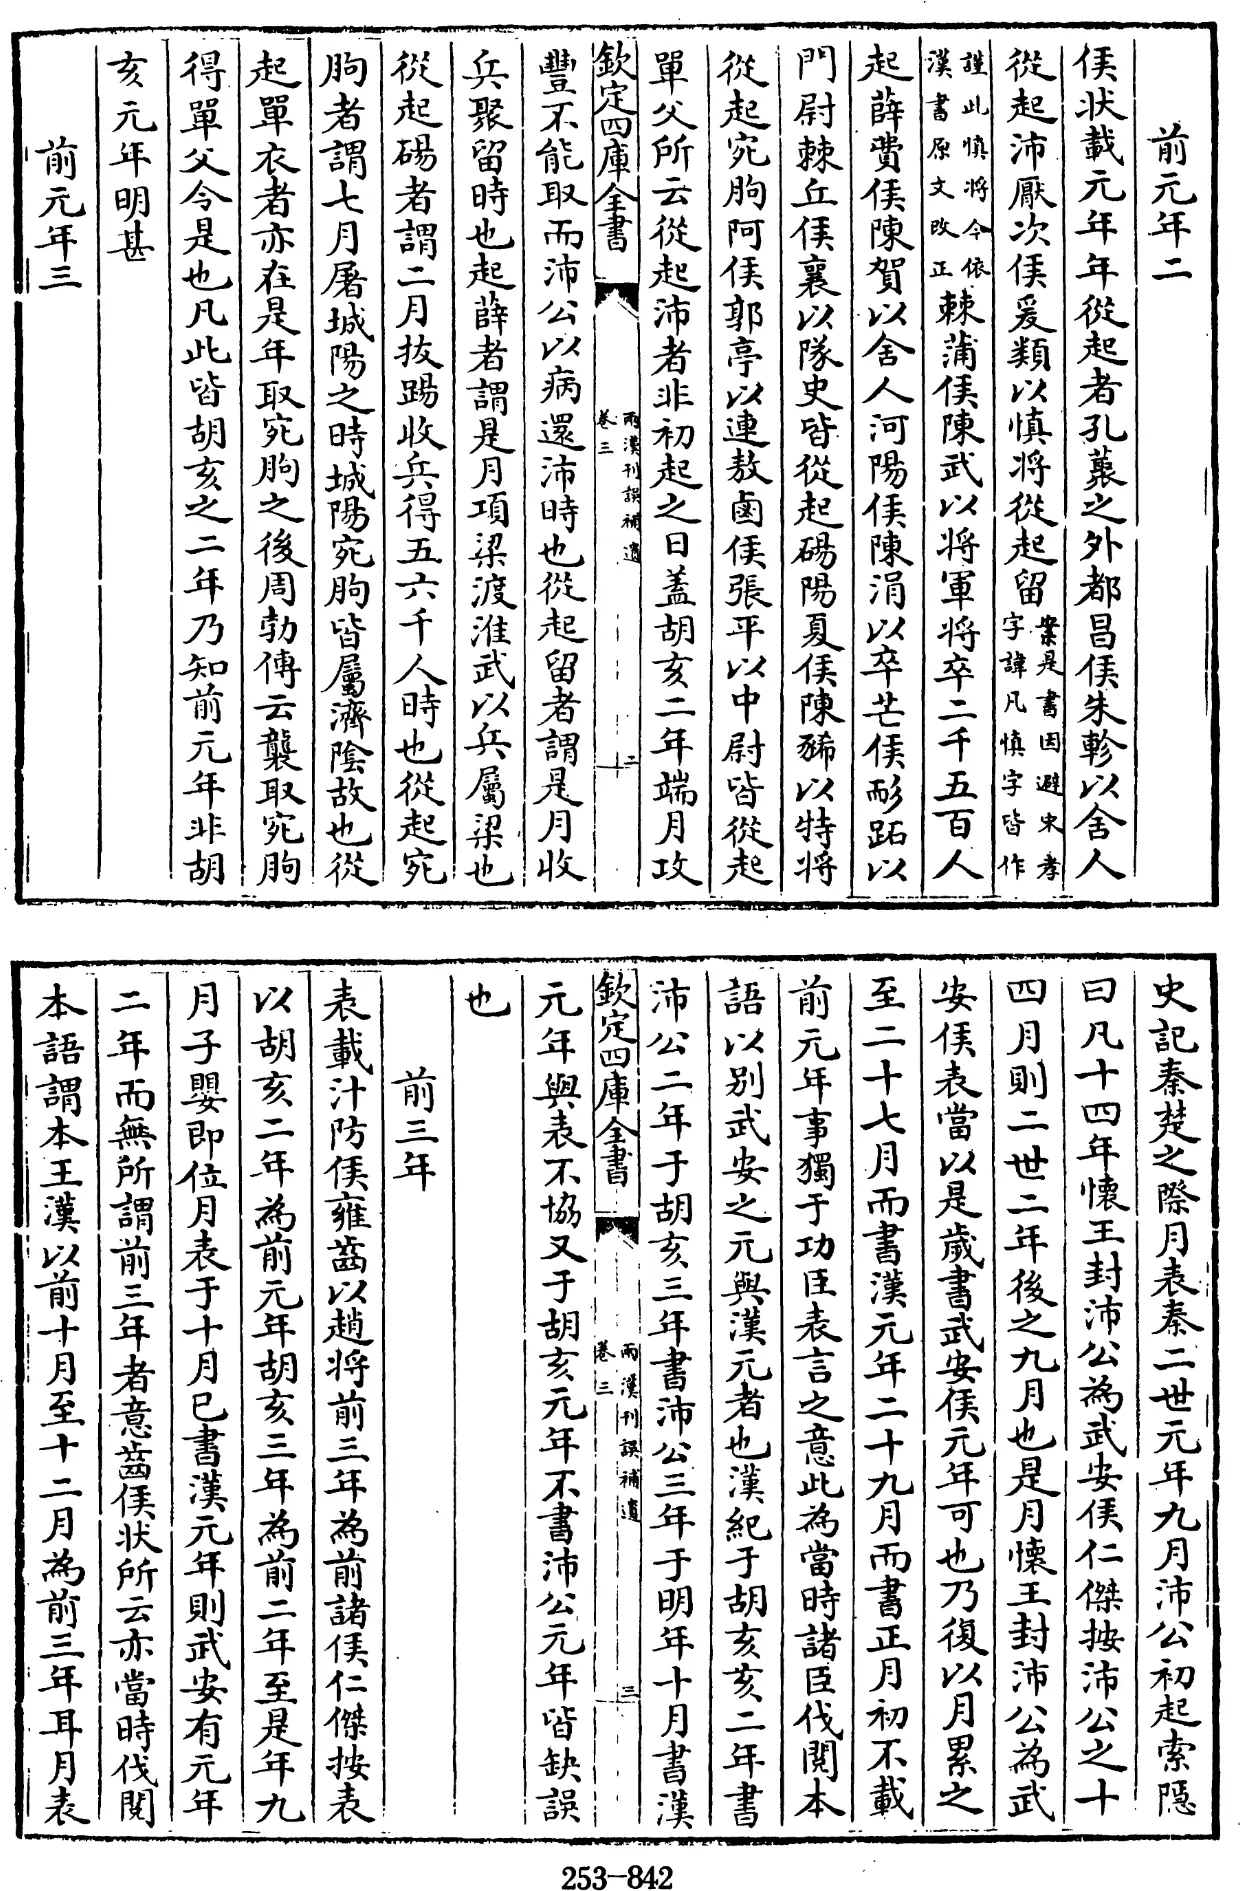 前元年二
侯狀載元年年從起者孔藂之外都昌侯朱軫以舍人
從起沛厭次侯爰類以慎將從起留案是書因避宋孝
字諱凡慎字皆作
謹此慎將今依
漢書原文改正棘蒲侯陳武以將軍將卒二千五百人
起薛費侯陳賀以舍人河陽侯陳涓以卒芒侯耏跖以
門尉棘丘侯襄以隊史皆從起碭陽夏侯陳豨以特將
從起宛朐阿侯郭亭以連敖鹵侯張平以中尉皆從起
單父所云從起沛者非初起之日蓋胡亥二年端月攻
欽定四庫全書
兩漢刊誤補遺
卷三
二
豐不能取而沛公以病還沛時也從起留者謂是月收
兵聚留時也起薛者謂是月項梁渡淮武以兵屬梁也
從起碭者謂二月拔踢收兵得五六千人時也從起宛
朐者謂七月屠城陽之時城陽宛朐皆屬濟陰故也從
起單衣者亦在是年取宛朐之後周勃傳云襲取宛朐
得單父令是也凡此皆胡亥之二年乃知前元年非胡
亥元年明甚
前元年三
史記秦楚之際月表秦二世元年九月沛公初起索隱
曰凡十四年懷王封沛公為武安侯仁傑按沛公之十
四月則二世二年後之九月也是月懷王封沛公為武
安侯表當以是歲書武安侯元年可也乃復以月累之
至二十七月而書漢元年二十九月而書正月初不載
前元年事獨于功臣表言之意此為當時諸臣伐閱本
語以別武安之元與漢元者也漢紀于胡亥亥二年書
沛公二年于胡亥三年書沛公三年于明年十月書漢
欽定四庫全書
兩漢刊誤補遺
卷三
三
元年與表不協又于胡亥元年不書沛公元年皆缺誤
也
前三年
表載汁防侯雍齒以趙將前三年為前諸侯仁傑按表
以胡亥二年為前元年胡亥三年為前二年至是年九
月子嬰即位月表于十月已書漢元年則武安有元年
二年而無所謂前三年者意齒侯狀所云亦當時伐閱
本語謂本王漢以前十月至十二月為前三年耳月表
253-842